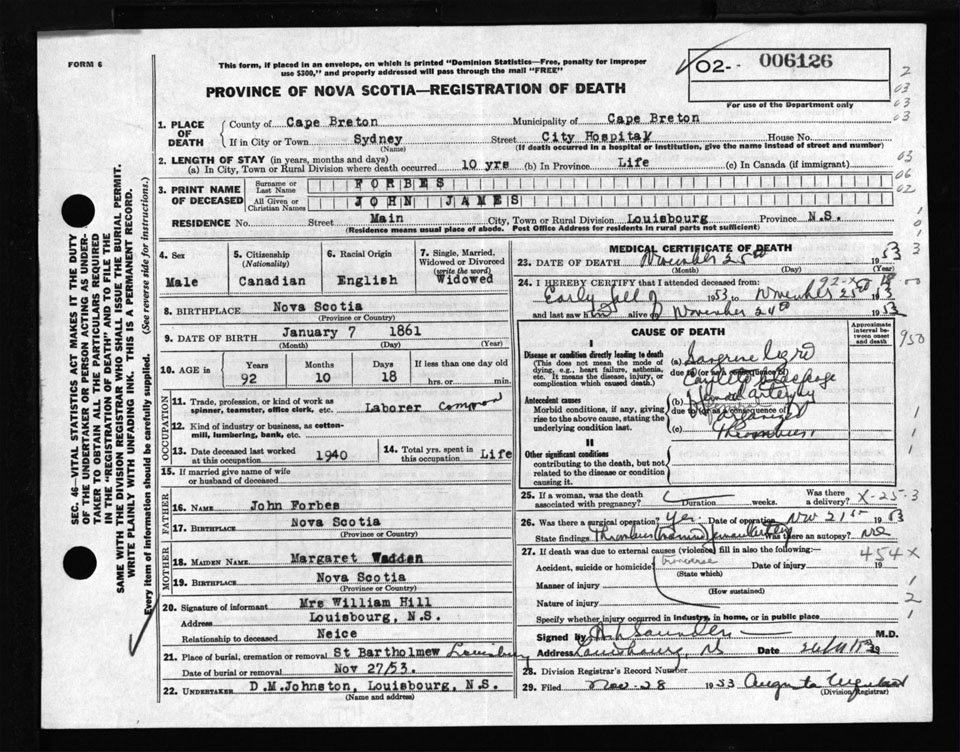 FORM 6
This form, if placed in an envelope, on which is printed "Dominion Statistics—Free, penalty for improper
use $300," and properly addressed will pass through the mail "FREE"
O2- 006126
For use of the Department only
PROVINCE OF NOVA SCOTIA—REGISTRATION OF DEATH
1. PLACE OF DEATH
County of Cape Breton Municipality of Cape Breton
If in City or Town Sydney Street City Hospital House No.
(Name) (If death occurred in a hospital or institution, give the name instead of street and number)
2. LENGTH OF STAY (in years, months and days)
(a) In City, Town or Rural Division where death occurred 10 yrs (b) In Province Life (c) In Canada (if immigrant)
3. PRINT NAME OF DECEASED
Surname or Last Name FORBES
All Given or Christian Names JOHN JAMES
RESIDENCE No. Street Main City, Town or Rural Division Louisbourg Province N.S.
(Residence means usual place of abode. Post Office Address for residents in rural parts not sufficient)
4. Sex Male
5. Citizenship (Nationality) Canadian
6. Racial Origin English
7. Single, Married, Widowed or Divorced (write the word) Widowed
8. BIRTHPLACE Nova Scotia
(Province or Country)
9. DATE OF BIRTH January 7 1861
(Month) (Day) (Year)
10. AGE in Years 92 Months 10 Days 18 If less than one day old hrs. or min.
OCCUPATION
11. Trade, profession, or kind of work as spinner, teamster, office clerk, etc. Laborer common
12. Kind of industry or business, as cotton-mill, lumbering, bank, etc.
13. Date deceased last worked at this occupation 1940
14. Total yrs. spent in this occupation Life
15. If married give name of wife or husband of deceased
FATHER
16. NAME John Forbes
17. BIRTHPLACE Nova Scotia
(Province or Country)
MOTHER
18. MAIDEN NAME Margaret Wadden
19. BIRTHPLACE Nova Scotia
(Province or Country)
20. Signature of informant Mrs William Hill
Address Louisbourg, N.S.
Relationship to deceased Neice
21. Place of burial, cremation or removal St Bartholmew Louisburg
Date of burial or removal Nov 27/53.
22. UNDERTAKER D.M.Johnston, Louisbourg, N.S.
(Name and address)
MEDICAL CERTIFICATE OF DEATH
23. DATE OF DEATH November 25th 1953
(Month) (Day) (Year)
24. I HEREBY CERTIFY that I attended deceased from:
Early fall of 1953 to November 25th 1953
and last saw him alive on November 24th 1953
CAUSE OF DEATH
Approximate interval between onset and death
I
Disease or condition directly leading to death
(This does not mean the mode of dying, e.g., heart failure, asthenia, etc. It means the disease, injury, or complication which caused death.)
(a)
due to (or as a consequence of)
Antecedent causes
Morbid conditions, if any, giving rise to the above cause, stating the underlying condition last.
(b)
due to (or as a consequence of)
(c) Thrombus
II
Other significant conditions
contributing to the death, but not related to the disease or condition causing it.
25. If a woman, was the death associated with pregnancy? Duration weeks. Was there a delivery?
26. Was there a surgical operation? Yes. Date of operation Nov 21st 1953
State findings Thrombus Was there an autopsy? No
27. If death was due to external causes (violence) fill in also the following:—
Accident, suicide or homicide Date of injury 19
(State which)
Manner of injury
(How sustained)
Nature of injury
Specify whether injury occurred in industry, in home, or in public place
Signed by Saunders M.D.
Address Louisbourg, NS Date
28. Division Registrar's Record Number
29. Filed Nov-28 1953 Augusta
(Division Registrar)
2
03
03
03
03
06
02
950
X-25-3
454X
SEC. 46—VITAL STATISTICS ACT MAKES IT THE DUTY
OF THE UNDERTAKER OR PERSON ACTING AS UNDER-
TAKER TO OBTAIN ALL THE PARTICULARS REQUIRED
IN THE "REGISTRATION OF DEATH" AND TO FILE THE
SAME WITH THE DIVISION REGISTRAR WHO SHALL ISSUE THE BURIAL PERMIT.
WRITE PLAINLY WITH UNFADING INK. THIS IS A PERMANENT RECORD.
Every item of information should be carefully supplied. (See reverse side for instructions.)